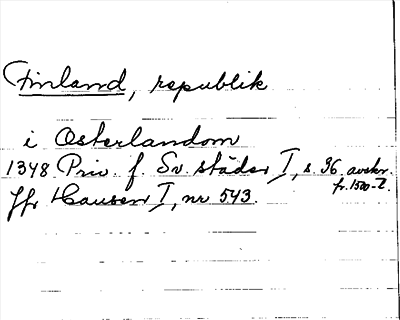 Finland, republik
i Osterlandom
1348 Priv. f. Sv. städer I, s. 96 avskr. fr. 1500-t.
Jfr Hausen I, nr 543.